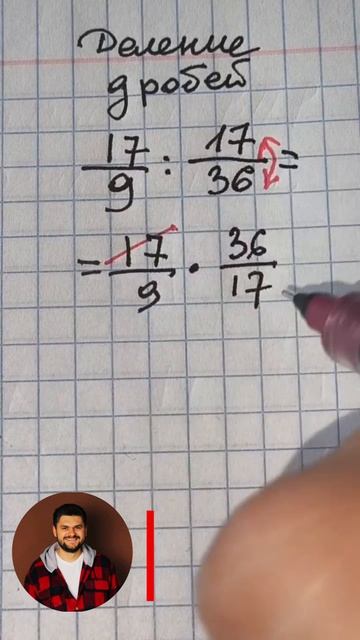 Деление
дробей
17/9 : 17/36 =
= 17/9 · 36/17